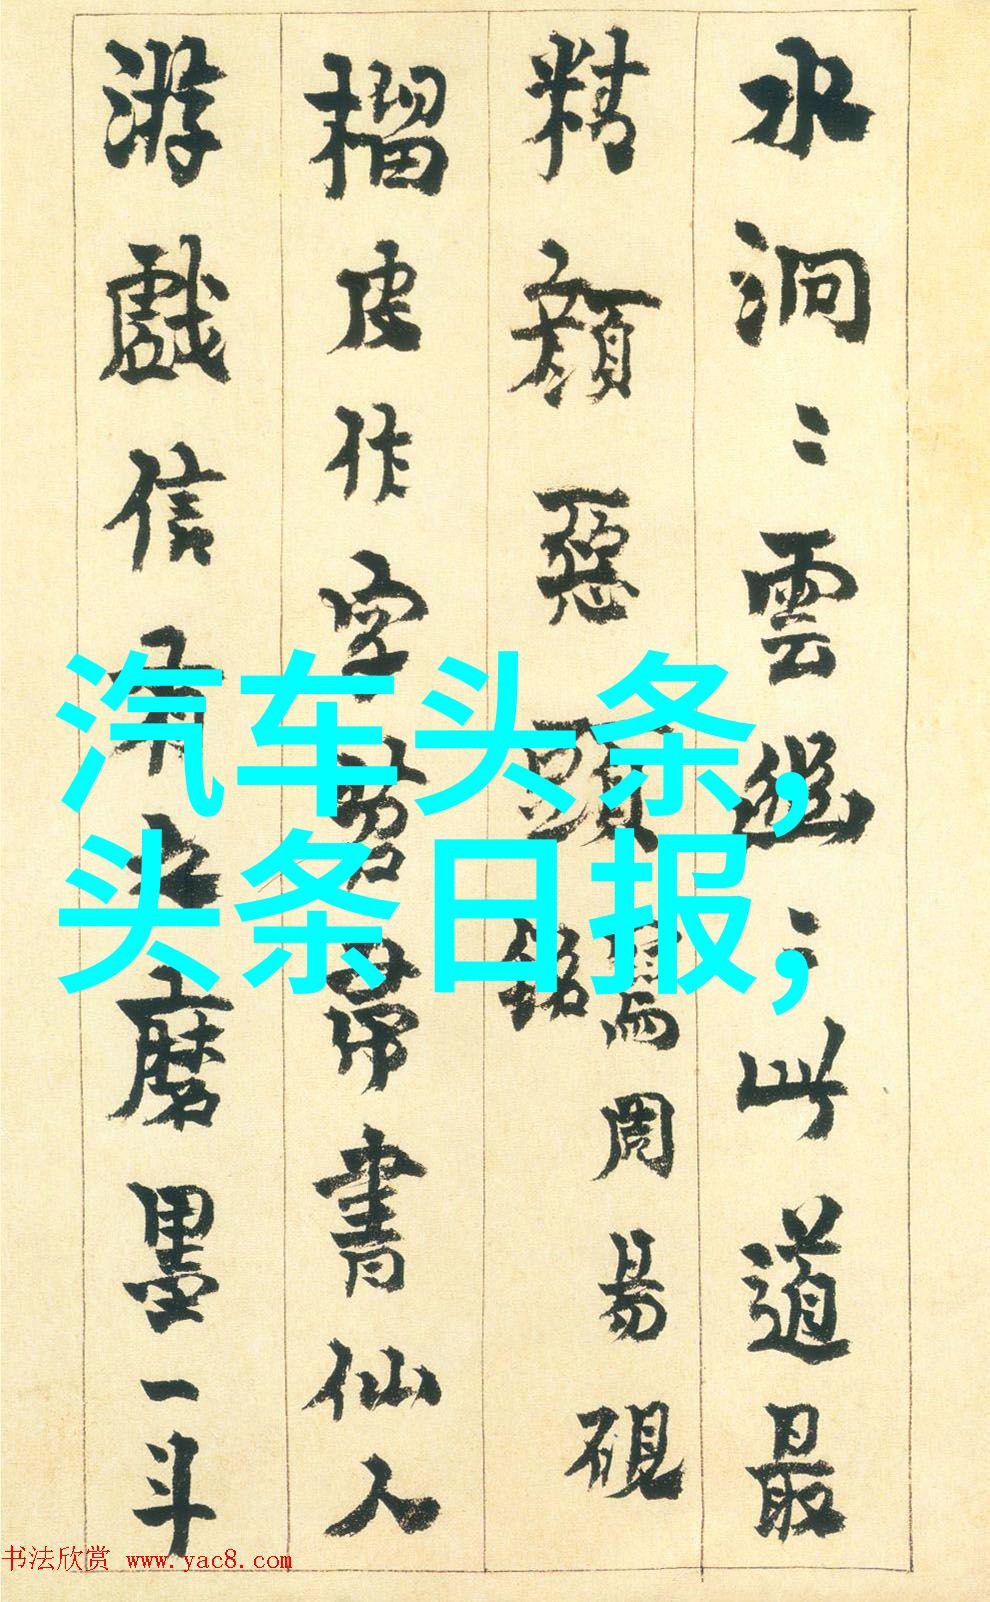 水洞〻雲〻此道最
精顏惡頭
寫周易硯
銘
榴皮作字笤帚書仙人
游戲信有之磨墨一斗
汽车头条,
头条日报,
书法欣赏 www.yac8.com